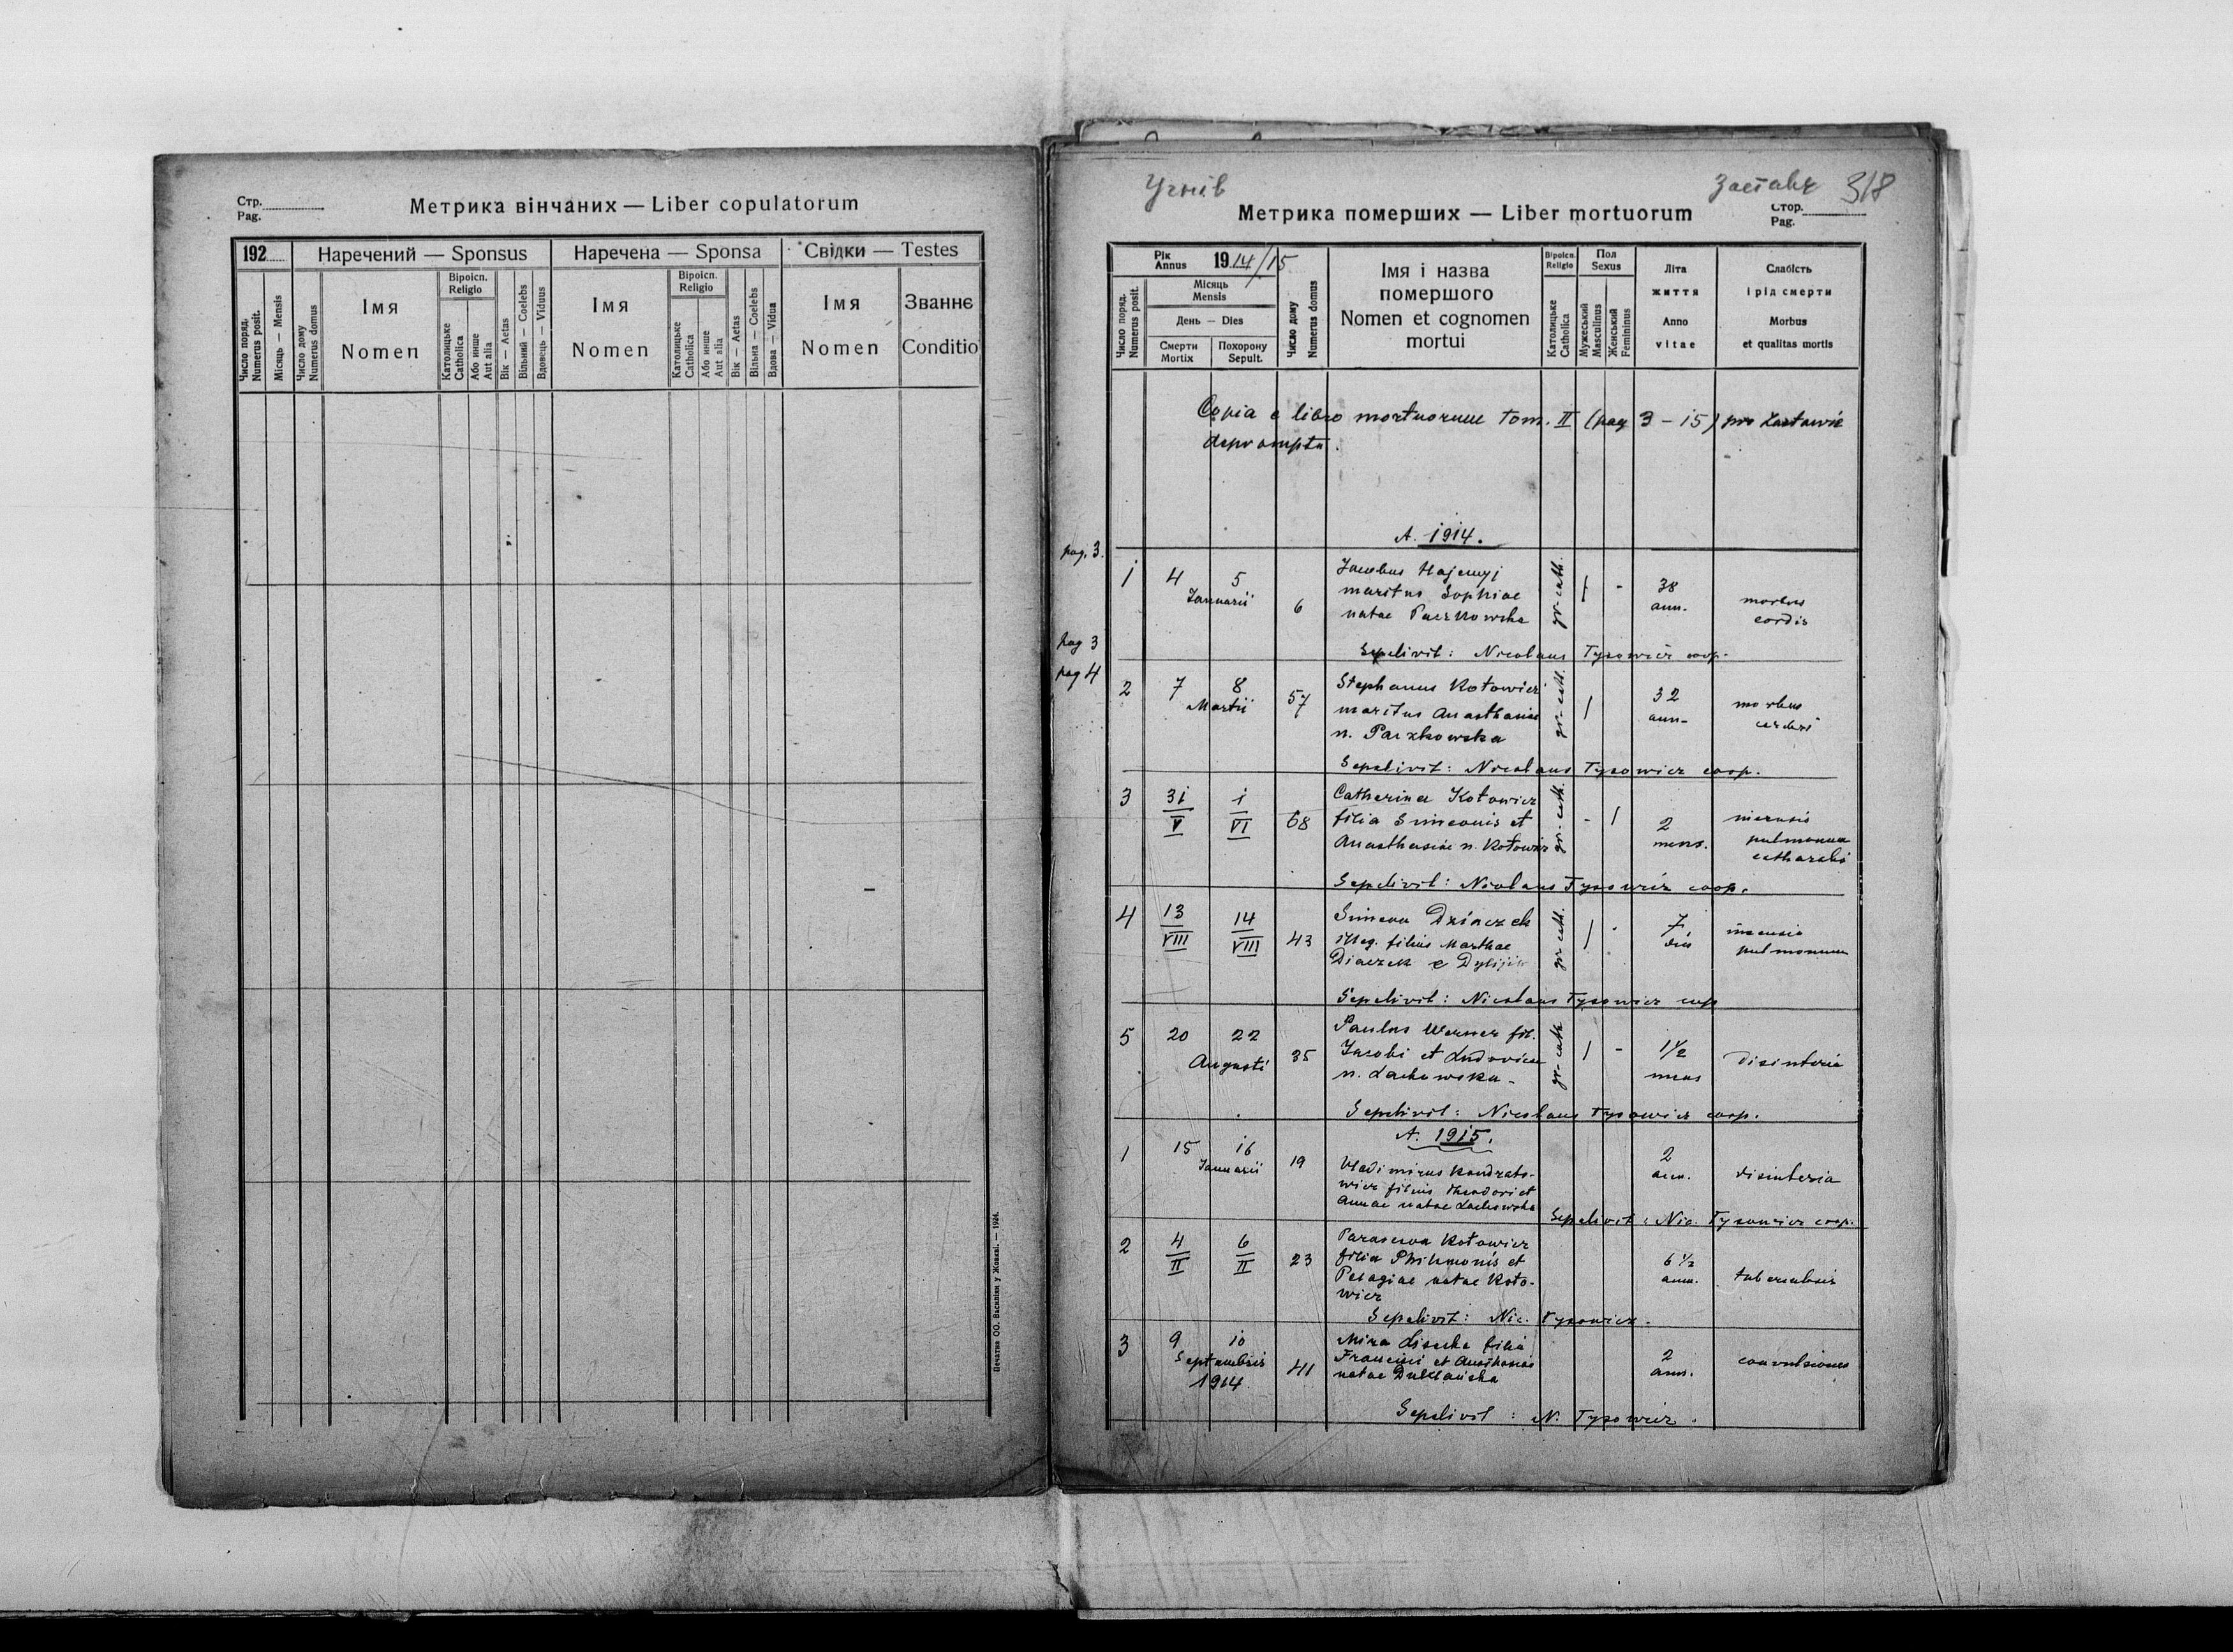 Стр.
Pag.
Метрика вінчаних — Liber copulatorum
192
Наречений — Sponsus
Наречена — Sponsa
Свідки — Testes
Число поряд.
Numerus posit.
Місяць — Mensis
Число дому
Numerus domus
Імя
Nomen
Віроісп.
Religio
Католицьке
Catholica
Або инше
Aut alia
Вік — Aetas
Вільний — Coelebs
Вдовець — Viduus
Імя
Nomen
Віроісп.
Religio
Католицьке
Catholica
Або инше
Aut alia
Вік — Aetas
Вільна — Coelebs
Вдова — Vidua
Імя
Nomen
Званнє
Conditio
Печатня ОО. Василіян у Жовкві. — 1924.
Угнів
Заставє 318
Метрика померших — Liber mortuorum
Стор.
Pag.
Рік
Annus
1914/15
Число поряд.
Numerus posit.
Місяць
Mensis
День — Dies
Смерти
Mortix
Похорону
Sepult.
Число дому
Numerus domus
Імя і назва
помершого
Nomen et cognomen
mortui
Віроісп.
Religio
Католицьке
Catholica
Пол
Sexus
Мужеський
Masculinus
Женський
Femininus
Літа
життя
Anno
vitae
Слабість
і рід смерти
Morbus
et qualitas mortis
Copia e libro mortuorum tom. II (pag 3 - 15) pro
deprompta.
A. 1914.
pag. 3.
1 4 5
Januarii
6
Jacobus
maritus Sophiae
natae Paczkowska
gr-cath.
1 -
38
ann.
morbus
cordis
Sepelivit: Nicolaus Tysowicz coop.
pag 3
pag 4
2 7 8
Martii
57
Stephanus Kotowicz
maritus Anasthasiae
n. Paczkowska
gr-cath.
1
32
ann-
morbus
Sepelivit: Nicolaus Tysowicz coop.
3 31
V
1
VI
68
Catherina Kotowicz
filia Simeonis et
Anasthasiae n. Kotowicz
gr-cath.
- 1
2
mens.
pulmonum
Sepelivit: Nicolaus Tysowicz coop.
4 13
VIII
14
VIII
43
Simeon Dziaczek
illeg. filius Marthae
Diaczek e
gr-cath.
1
7
pulmonum
Sepelivit: Nicolaus Tysowicz coop
5 20 22
Augusti
35
Paulus Werner fil.
Jacobi et Ludovica
n. Lachowska -
gr-cath
1 -
1 1/2
mens
disinteria
Sepelivit: Nicolaus Tysowicz coop.
A. 1915.
1 15 16
Januarii
19
Wladimirus Kondrato-
wicz filius Theodori et
Annae natae Lachowska
2
ann.
disinteria
Sepelivit: Nic. Tysowicz coop.
2 4
II
6
II
23
Parascewa Kotowicz
filia Philemonis et
Pelagiae natae Koto-
wicz
6 1/2
ann.
tuberculosis
Sepelivit: Nic. Tysowicz.
3 9 10
Septembris
1914
41
filia
Francisci et Anasthasiae
natae
2
ann.
convulsiones
Sepelivit: N. Tysowicz.